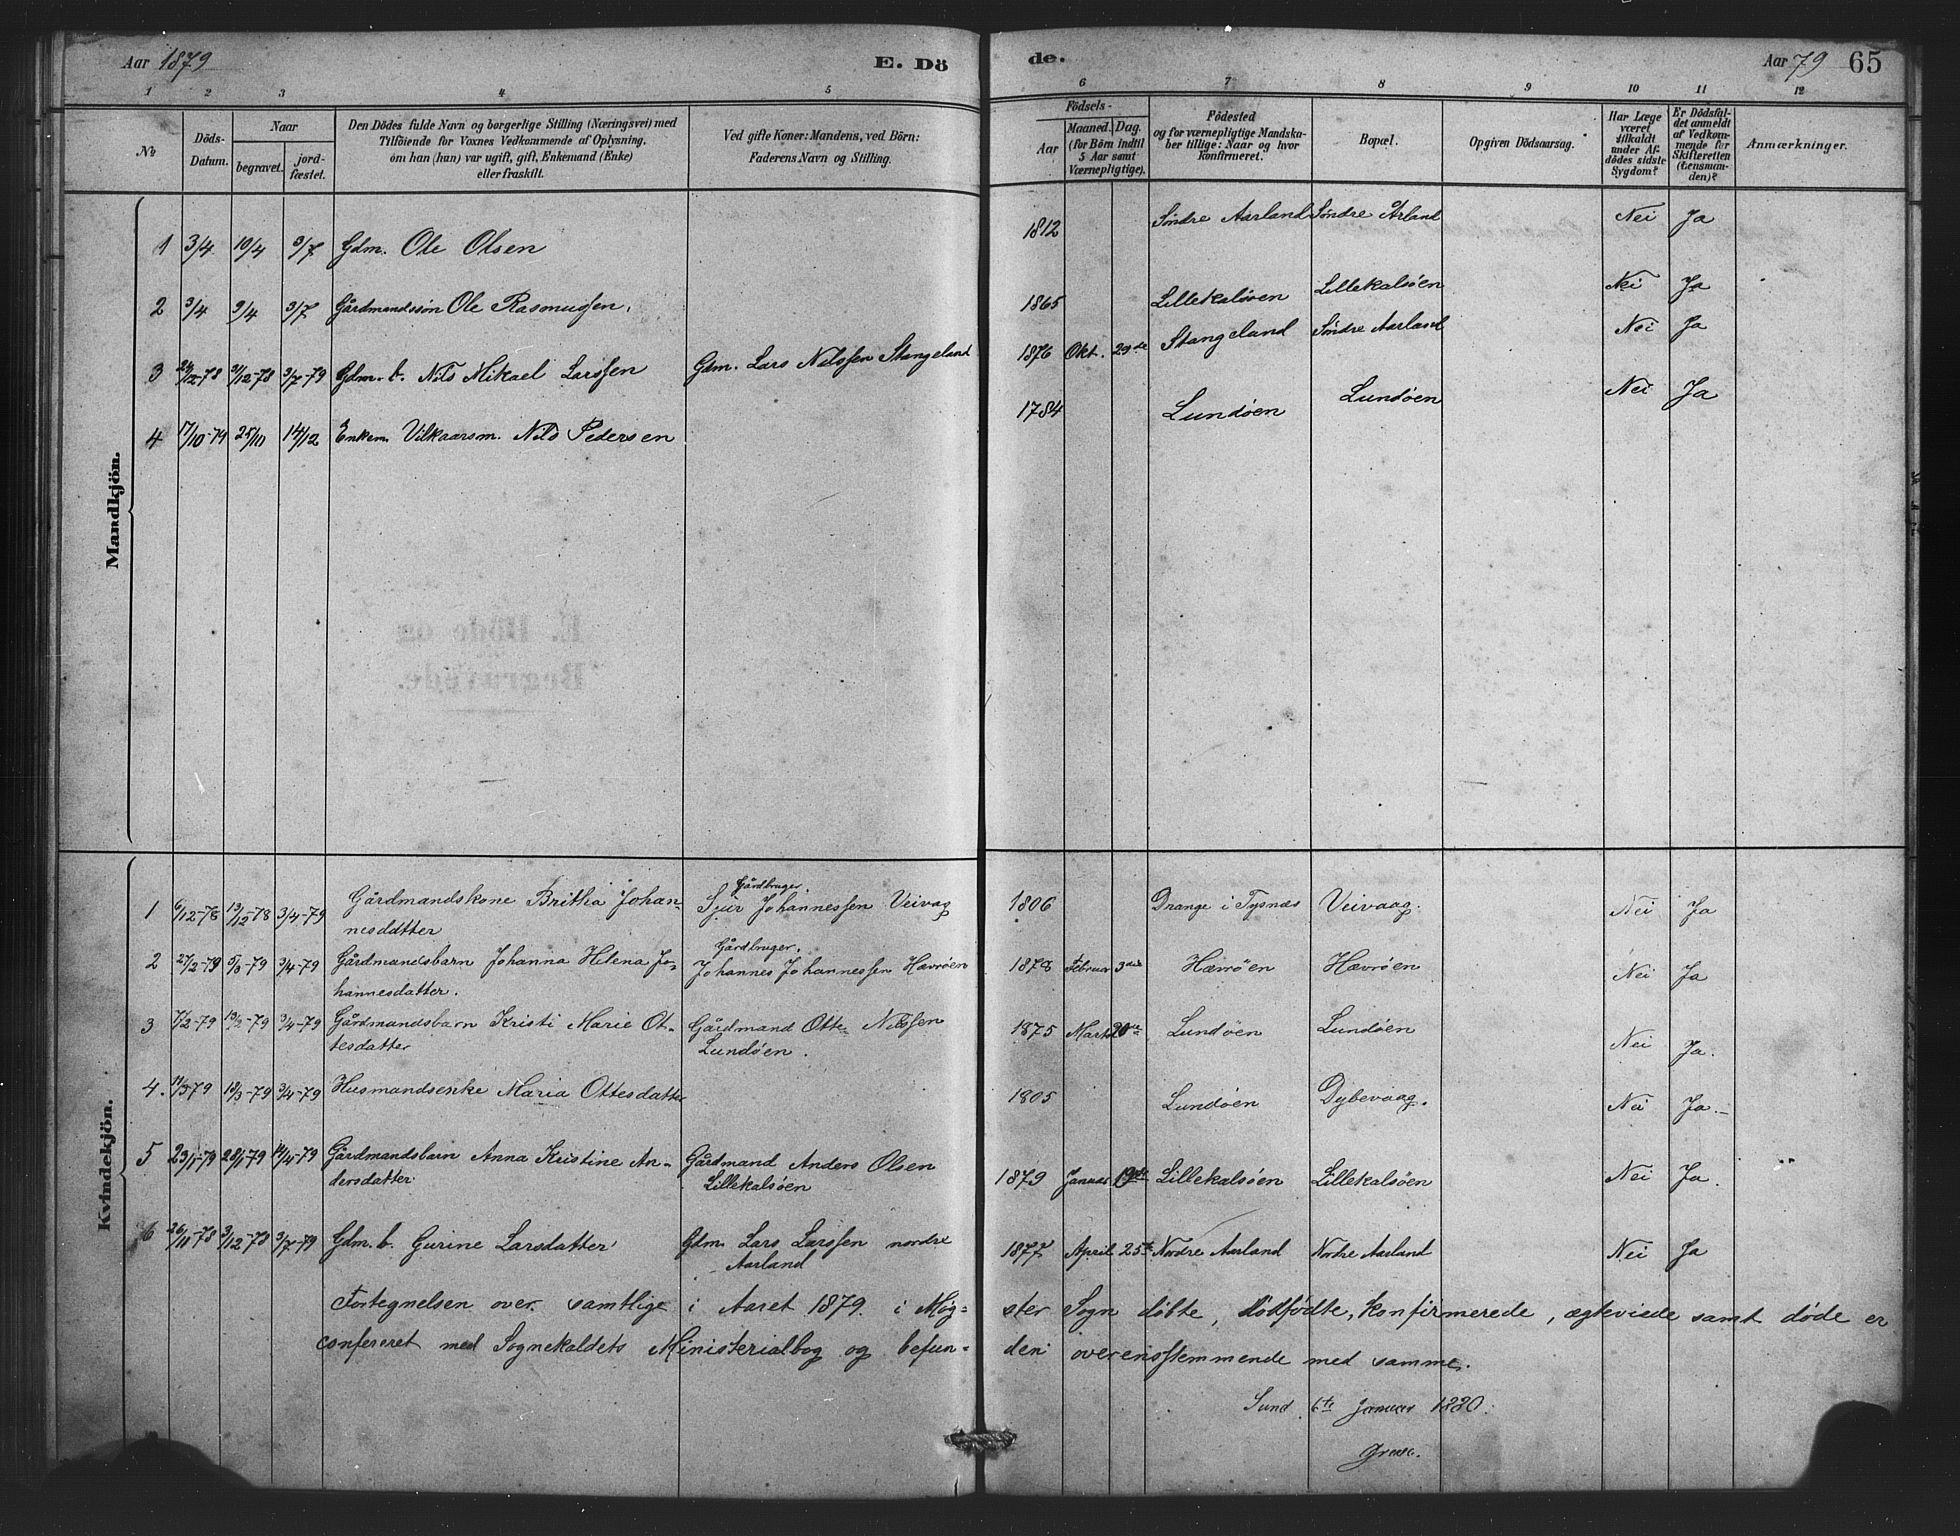 Aar 1879 E. Dö
de. Aar 79 65
1 2 3 4 5
6 7 8 9 10 11 12
No
Döds-
Datum.
Naar
begravet.
jord-
fæstet.
Den Dödes fulde Navn og borgerlige Stilling (Næringsvei) med
Tilföiende for Voxnes Vedkommende af Oplysning,
om han (hun) var ugift, gift, Enkemand (Enke)
eller fraskilt.
Ved gifte Koner: Mandens, ved Börn:
Faderens Navn og Stilling.
Födsels-
Aar
Maaned. Dag.
(for Börn indtil
5 Aar samt
Værnepligtige).
Födested
og for værnepligtige Mandska-
ber tillige: Naar og hvor
konfirmeret.
Bopæl.
Opgiven Dödsaarsag.
Har Læge
været
tilkaldt
under Af-
dödes sidste
Sygdom?
Er Dödsfal-
det anmeldt
af Vedkom-
mende for
Skifteretten
(Lensman-
den)?
Anmærkninger.
Mandkjön.
1 3/4 10/4 3/7 Gdm. Ole Olsen 1812 Søndre Aarland Søndre Årland Nei Ja
2 3/4 9/4 3/7 Gårdmandssøn Ole Rasmussen, 1865 Lillekalsøen Lillekalsøen Nei Ja
3 /12-78 /12-78 3/7-79 Gdm. b. Nils Mikael Larssen Gdm. Lars Nilssen Stangeland 1876 Okt. 29de Stangeland Søndre Aarland Nei Ja
4 17/10-79 25/10 14/12 Enkem. Vilkaarsm. Nils Pedersen 1784 Lundøen Lundøen Nei Ja
Kvindekjön.
1 6/12-78 13/12-78 3/4-79 Gårdmandskone Britha Johan-
nesdatter
Gårdbruger.
Sjur Johannessen Veivag 1806 Drange i Tysnæs Veivaag. Nei Ja
2 27/2-79 5/3-79 3/4-79 Gårdmandsbarn Johanna Helena Jo-
hannesdatter.
Gårdbruger.
Johannes Johannessen Hævrøen 1878 Februar 3die Hævrøen Hævrøen Nei Ja
3 7/2-79 13/2-79 3/4-79 Gårdmandsbarn Kristi Marie Ot-
tesdatter
Gårdmand Otte Nilssen
Lundøen.
1875 Marts 20de Lundøen Lundøen Nei Ja.
4. 11/3 79 18/3-79 3/4-79 Husmandsenke Maria Ottesdatter 1805 Lundøen Dybevaag. Nei Ja.-
5 23/1-79 28/1-79 14/4-79 Gårdmandsbarn Anna Kristine An-
dersdatter
Gårdmand Anders Olsen
Lillekalsøen
1879 Januar 19de Lillekalsøen Lillekalsøen Nei Ja.
6 26/11-78 3/12-78 3/7-79 Gdm. b. Gurine Larsdatter Gdm. Lars Larssen nordre
Aarland
1877 April 25de Nordre Aarland Nordre Aarland Nei Ja
Fortegnelsen over samtlige i Aaret 1879 i Møg-
ster Sogn døbte, dødfødte, konfirmerede, ægteviede samt døde er
confereret med Sognekaldets Ministerialbog og befun-
den overensstemmende med samme.
Sund 6te Januar 1880.